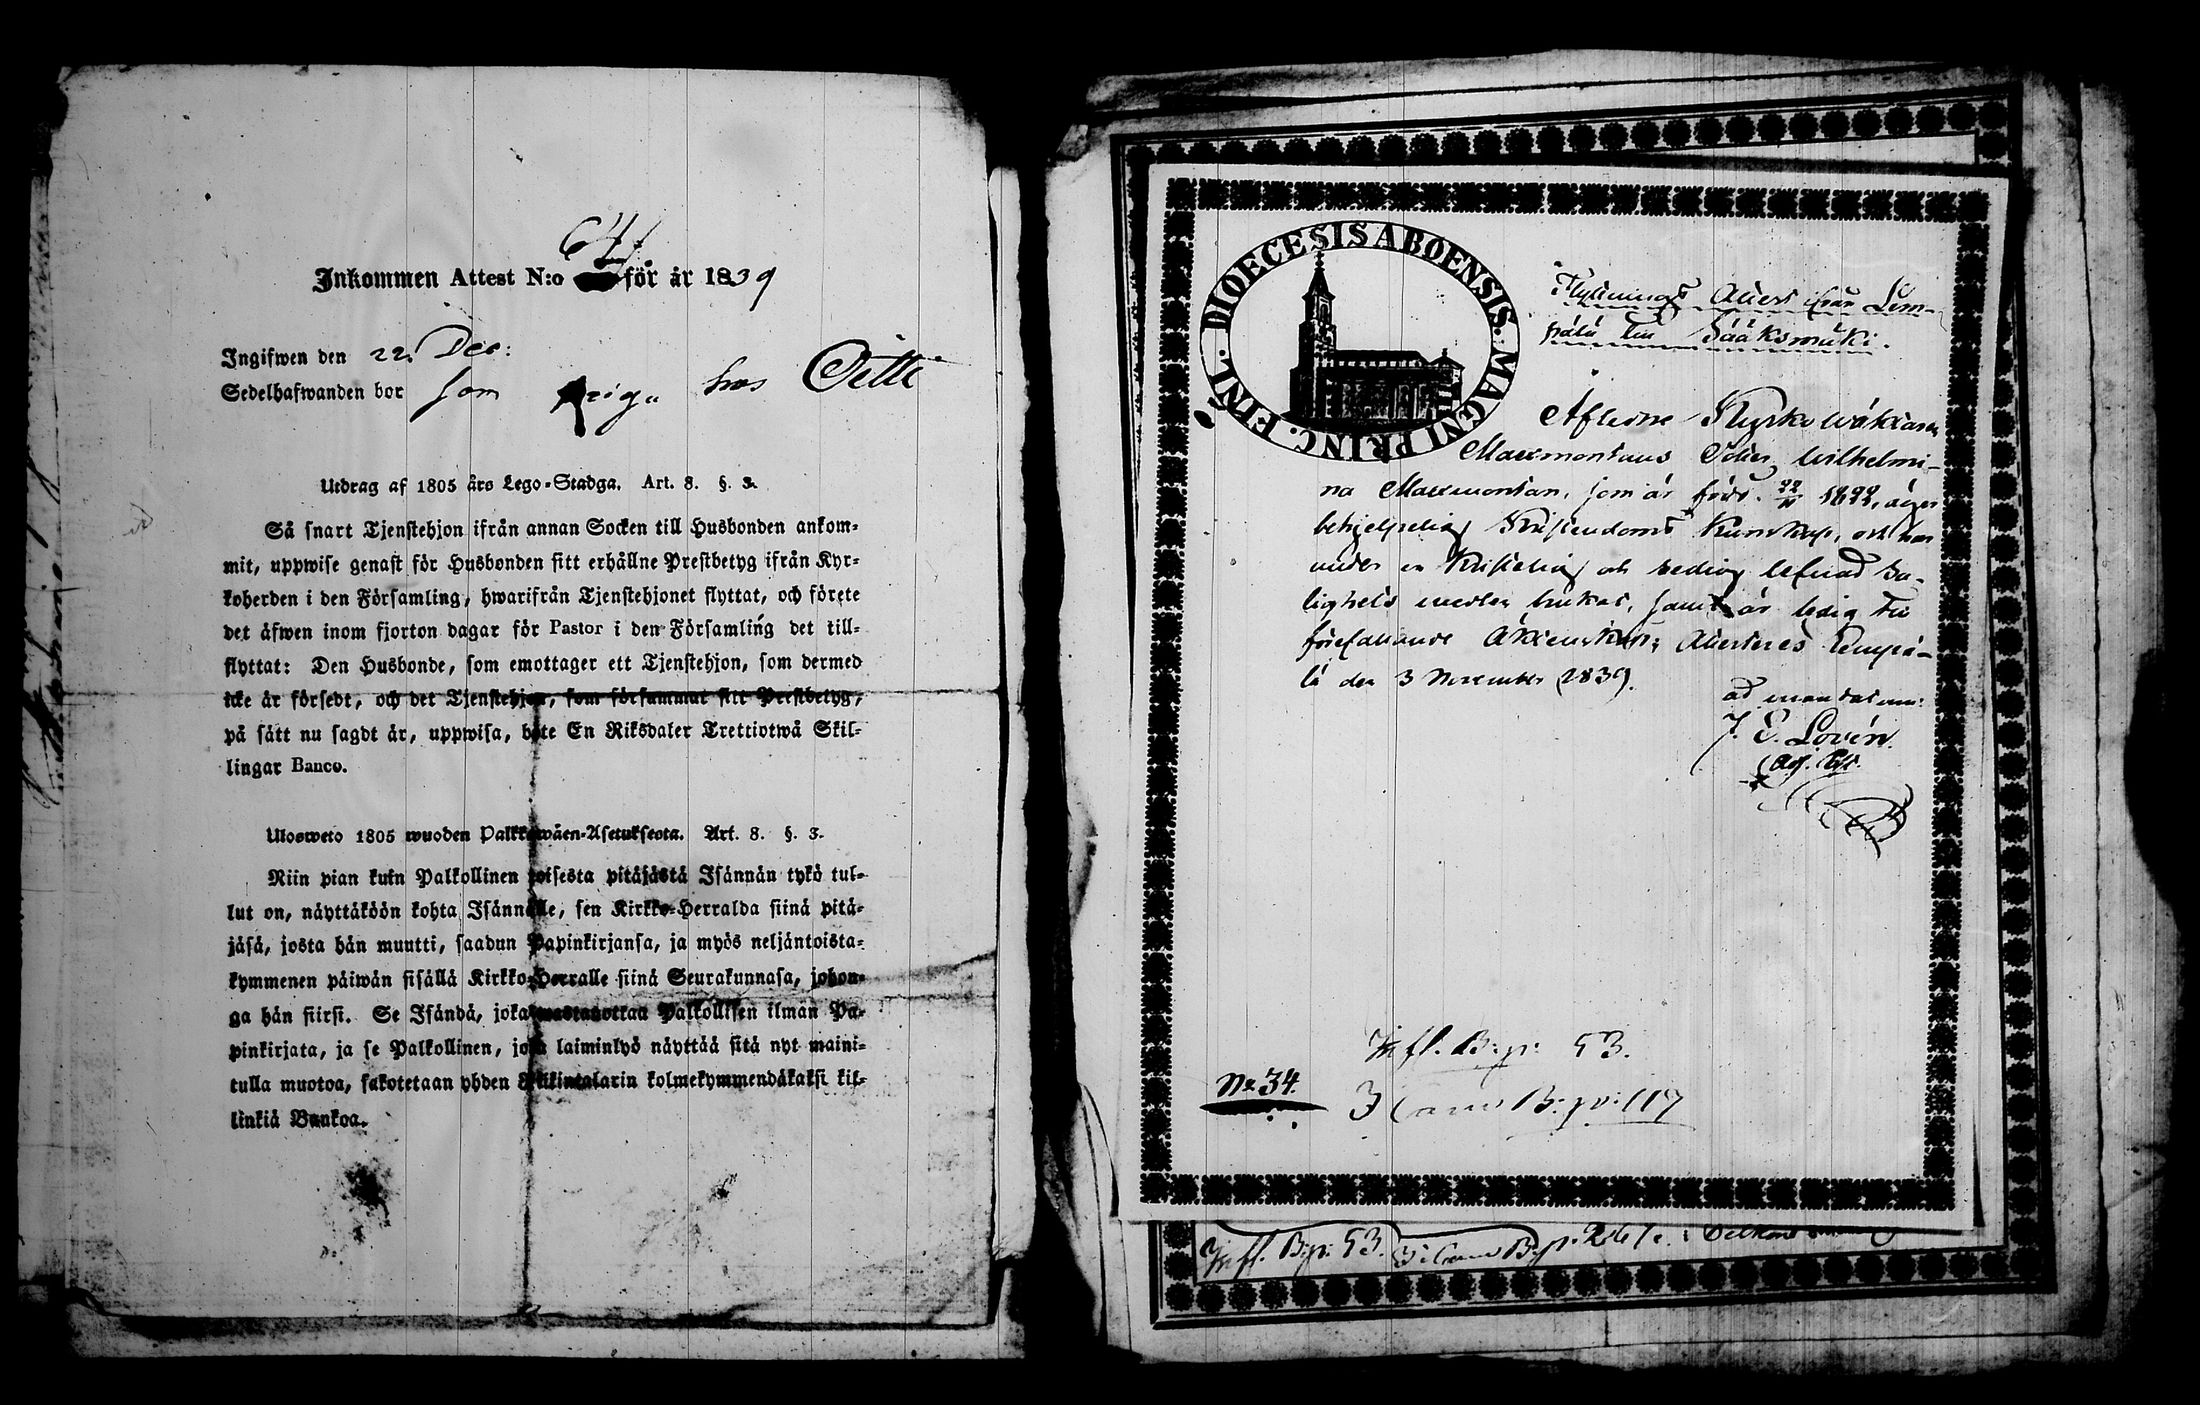 Inkommen Attest N:o 64 för år 1839
Ingifwen den 22 Dec:
Sedelhafwanden bor som hos
Utdrag af 1805 års Lego-Stadga. Art. 8. §. 3.
Så snart Tjenstehjon ifrån annan Socken till Husbonden ankom-
mit, uppwise genast för Husbonden sitt erhållne Prestbetyg ifrån Kyr-
koherden i den Församling, hwarifrån Tjenstehjonet flyttat, och förete
det äfwen inom fjorton dagar för Pastor i den Församling det till-
flyttat: Den Husbonde, som emottager ett Tjenstehjon, som dermed
icke är försedt, och det Tjenstehjon, som försummat sitt Prestbetyg,
på sätt nu sagdt är, uppwisa, böte En Riksdaler Trettiotwå Skil-
lingar Banco.
Ulosweto 1805 wuoden Palkkawäen-Asetuksesta. Art. 8. §. 3.
Niin pian kuin Palkollinen toisesta pitäjästä Isännän tykö tul-
lut on, näyttäköön kohta Isännälle, sen Kirkko-Herralda siinä pitä-
jäsä, josta hän muutti, saadun Papinkirjansa, ja myös neljäntoista-
kymmenen päiwän sisällä Kirkko-Herralle siinä Seurakunnasa, johon-
ga hän siirsi. Se Isändä, joka wastanottaa Palkollisen ilman Pa-
pinkirjata, ja se Palkollinen, joka laiminlyö näyttää sitä nyt maini-
tulla muotoa, sakotetaan yhden Rikintalarin kolmekymmendäkaksi kil-
linkiä Bankoa.
DIOECESIS ABOENSIS. MAGNI PRINC. FINL.
Flyttnings Attest ifrån Lem-
pälä till Sääksmäki.
Aflidne Kyrkowäktaren
Maxmontans Dotter, Wilhelmi-
na Maxmontan, som är född. 22/11 1822, äger
behjelpelig Kristendoms Kunskap, och har
under en Kristelig och redlig lefnad Sa-
lighets medlen brukat, samt är ledig till
förefallande Äktenskap; Attesteres Lempä-
lä den 3 November 1839.
ad mandatum:
J. E. Lovén.
Adj. 
Infl. B: p: 53.
No 34.
3 Comm B: p: 117
Infl. B: p: 53. 3: Comm B: p. 261.